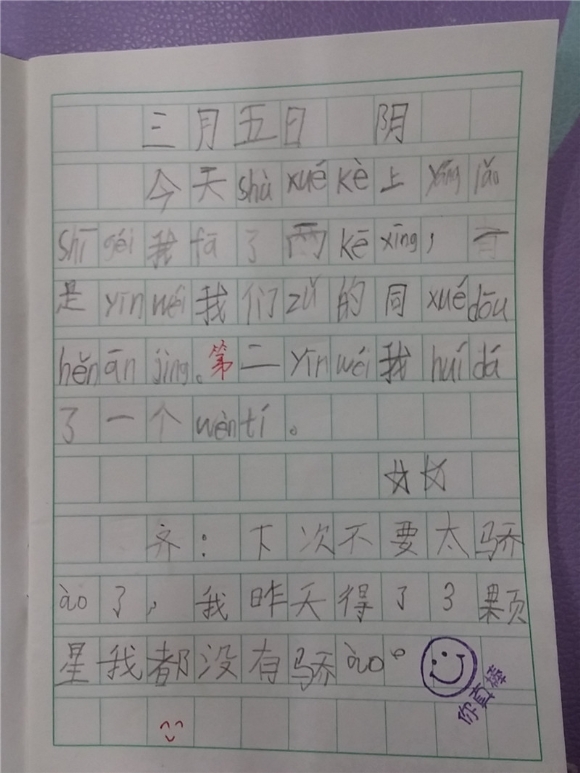 三月五日 阴
今天shù xué kè上 yáng lǎo
shī gěi我fā了两kē xīng，首
是yīn wéi我们zǔ的同xué dōu
hěn ān jìng。第二yīn wéi我huí dá
了一个wèn tí。
☆☆
齐：下次不要太骄
ào了，我昨天得了3颗
星我都没有骄ào。
你真棒